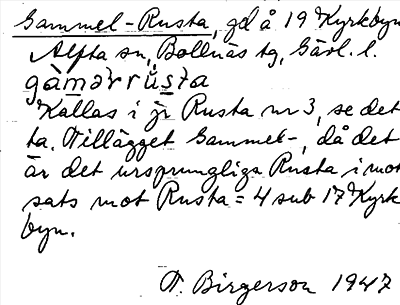 Gammel-Rusta, gd å 19 Kyrkbyn
Alfta sn, Bollnäs tg, Gävl. l.
gàmǝrrùsta
Kallas i jr Rusta nr 3, se det-
ta. Tillägget Gammel-, då det
är det ursprungliga Rusta i mot
sats mot Rusta = 4 sub 17 Kyrk
byn.
T. Birgerson 1947